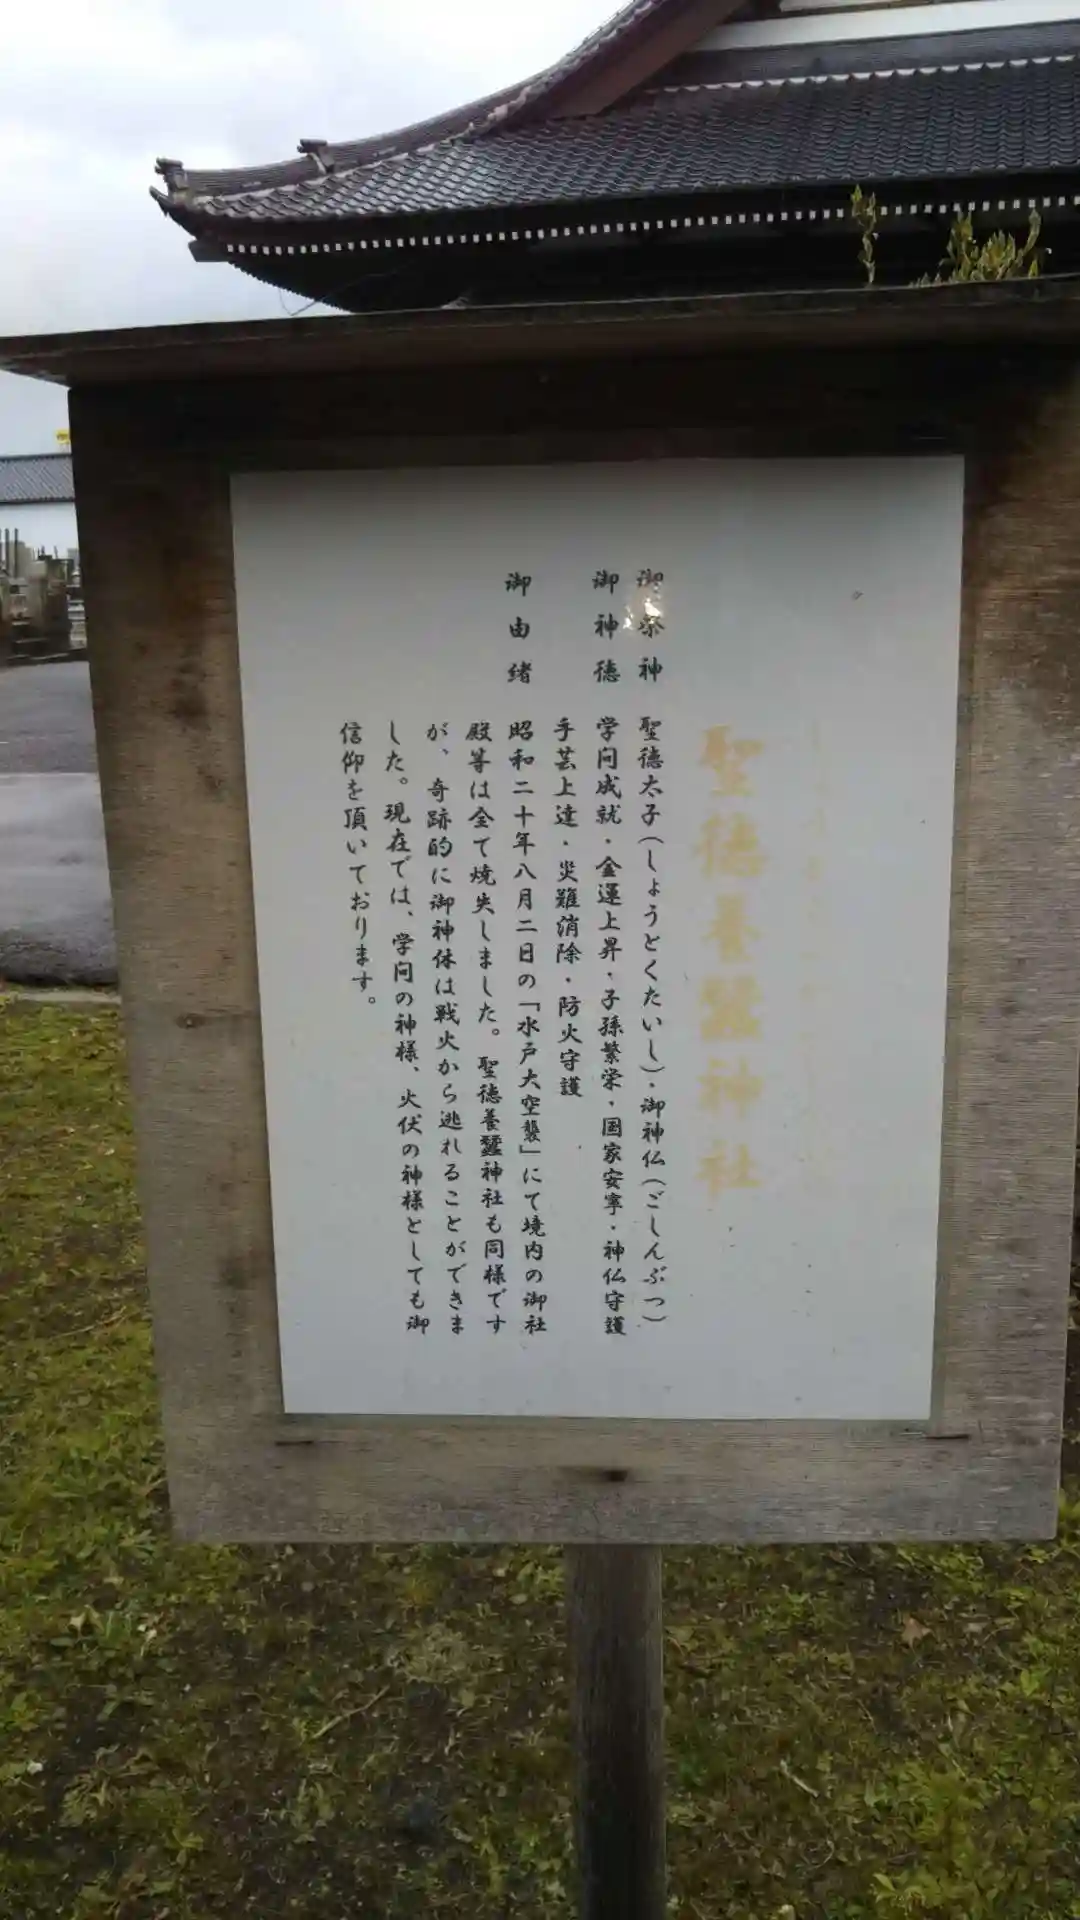 聖徳養蠶神社
御祭神 聖徳太子(しょうとくたいし)・御神仏(ごしんぶつ)
御神徳 学問成就・金運上昇・子孫繁栄・国家安寧・神仏守護
手芸上達・災難消除・防火守護
御由緒 昭和二十年八月二日の「水戸大空襲」にて境内の御社
殿等は全て焼失しました。聖徳養蠶神社も同様です
が、奇跡的に御神体は戦火から逃れることができま
した。現在では、学問の神様、火伏の神様としても御
信仰を頂いております。